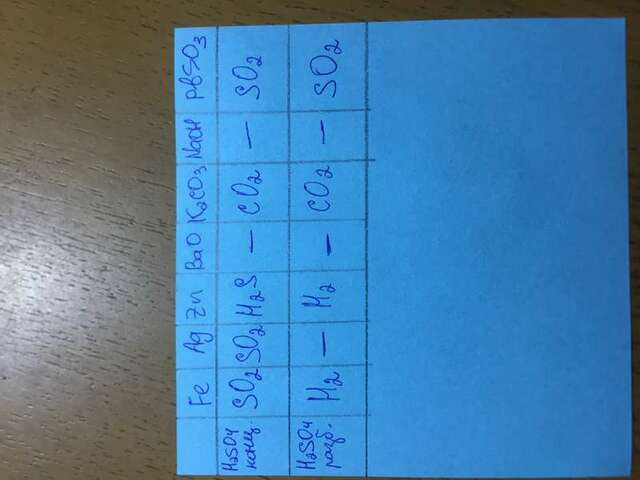 Fe Ag Zn BaO K₂CO₃ NaOH PbSO₃
H₂SO₄ конц. SO₂ SO₂ H₂S — CO₂ — SO₂
H₂SO₄ разб. H₂ — H₂ — CO₂ — SO₂